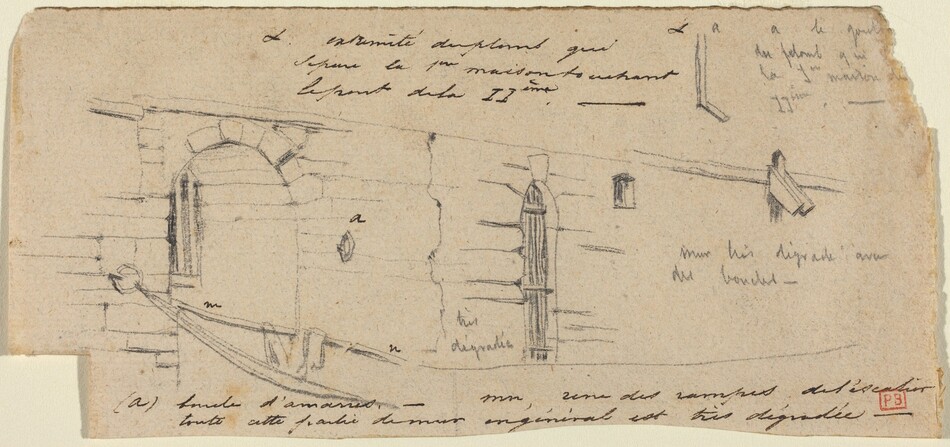 L. extremité du plomb qui
sépare la 1ère maison touchant
le pont de la IIème. —
L a a le
du plomb qui
la 1ère maison du
IIème. —
a
m
n
très
dégradée
mur très dégradé avec
des boucles —
(a) boucle d'amarres — mn, rene des rampes de l'éscalier
toute cette partie de mur en général est très dégradée —
PB